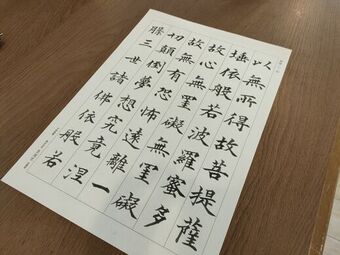 以無所得故菩提薩
埵依般若波羅蜜多
故心無罣礙無罣礙
故無有恐怖遠離一
切顛倒夢想究竟涅
槃三世諸佛依般若